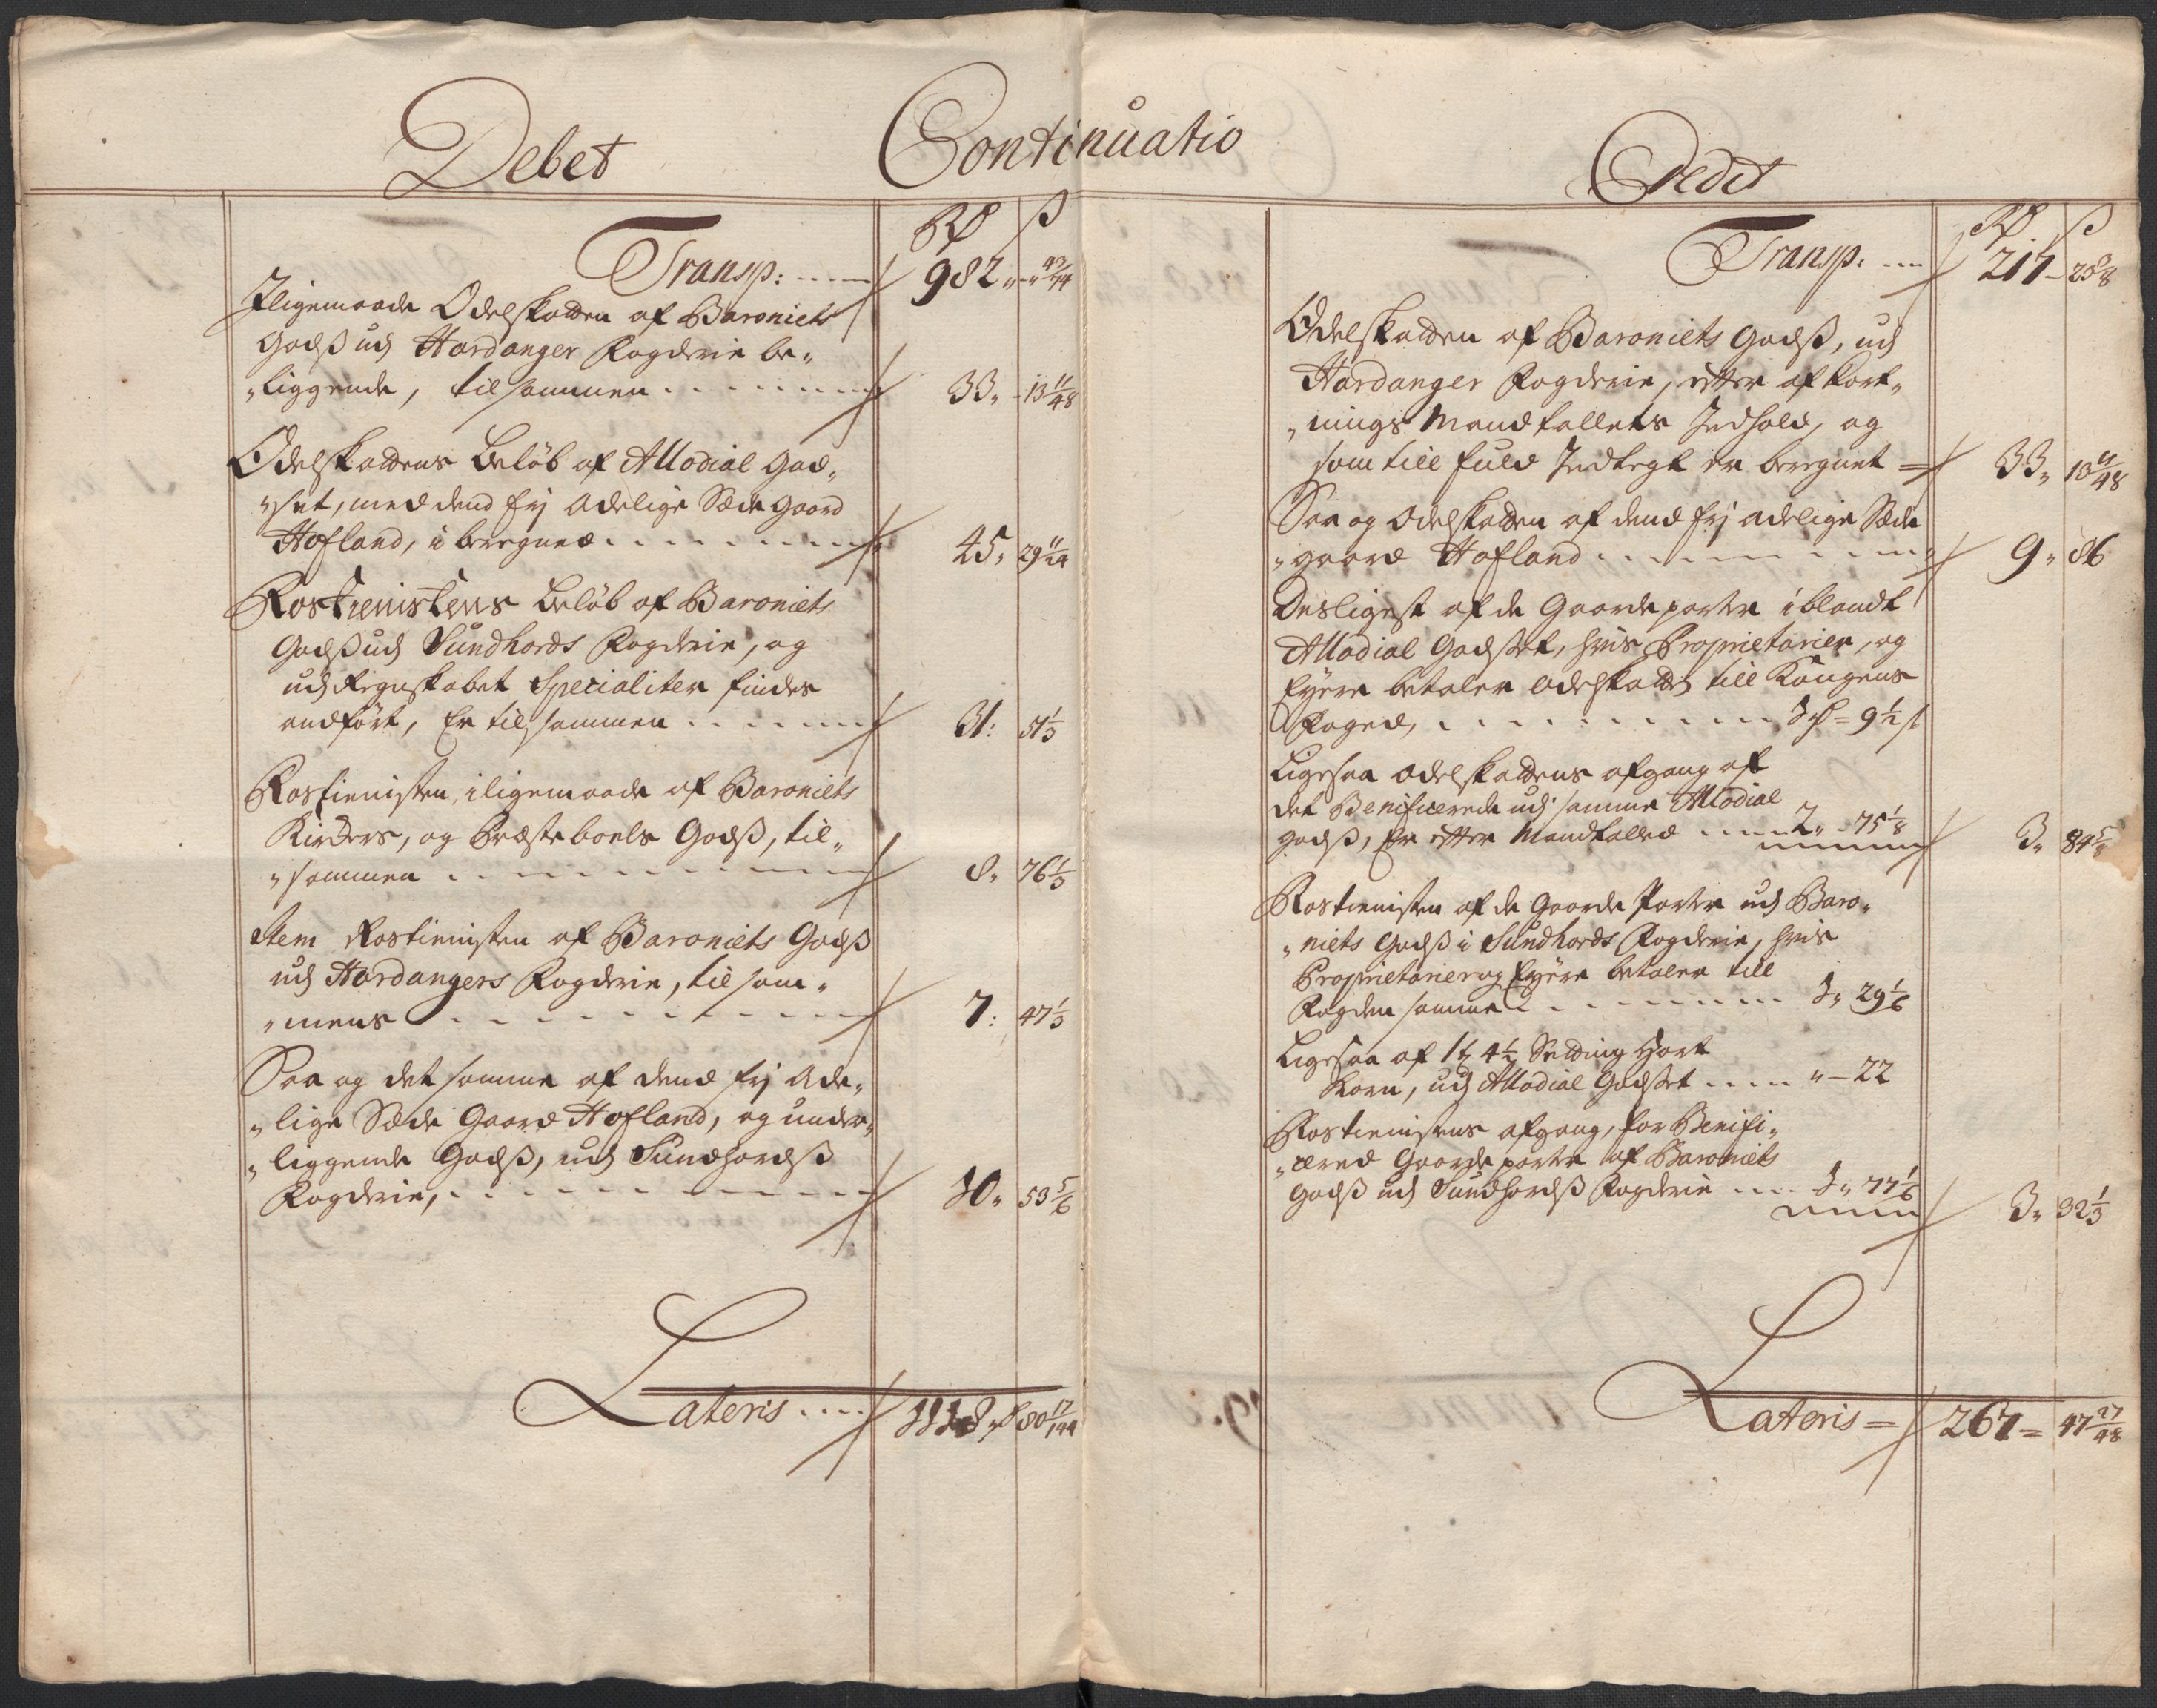 Debet
Continuatio
Rd ß
Transp: 982 „ „ 43/144
Iligemaade Odelskatten af Baroniets
Godß udj Hardanger Fogderie be„
„liggende, tilsammen 33„ 13 11/48
Odelskattens Beløb af Allodial God„
„set, med dend frj Adelige Sæde Gaard
Hofland, iberegned 45„ 29 11/24
Rostienistens Beløb af Baroniets
Godß udj Sundhords Fogderie, og
udj Regnskabet Specialiter findes
andført, Er tilsammen 31: 51 1/3
Rostienisten, iligemaade af Baroniets
Kirkers, og Præsteboels Godß, til„
„sammen 8„ 76 1/3
Item Rostienisten af Baroniets Godß
udj Hardangers Fogderie, tilsam„
„mens 7: 47 1/3
Saa og det samme af dend frj Ade„
„lige Sæde Gaard Hofland, og under„
„liggende Godß, udj Sundhordß
Fogderie, 10„ 53 5/6
Lateris 1118„ 80 17/144
Credit
Rd ß
Transp: 217 – 20
Odelskatten af Baroniets Godß, udj
Hardanger Fogderie, efter afkort„
„nings Mandtallets Indhold, og
som till fuld Indtegt er beregnet 33„ 13 11/48
Saa og Odelskatten af dend frj adelige Sæde
„gaard Hofland 9„ 86
Desligest af de Gaardeparter iblandt
Allodial Godset, hvis Proprietarier, og
Eyere betaler Odelskatt till Kongens
Foged, 1 rd = 9 1/2 ß
Ligesaa Odelskattens afgang af
det Benificerede udj samme Allodial
Godß, Er efter Mandtalled 2„ 75 1/8
3„ 84 5/8
Rostienisten af de Gaarde Parter udj Baro„
„niets Godß i Sundhords Fogderie, hvis
Proprietarier og Eyere betaler till
Fogden samme 1„ 29 1/6
Ligesaa af 4 1/2 Setting Hart
Korn, udj Allodial Godset „ – 22
Rostienistens afgang, for Benifi„
„cered Gaarde parter af Baroniets
Godß udj Sundhordß Fogderie 1„ 77 1/6
3„ 32 1/3
Lateris = 267 = 47 27/48